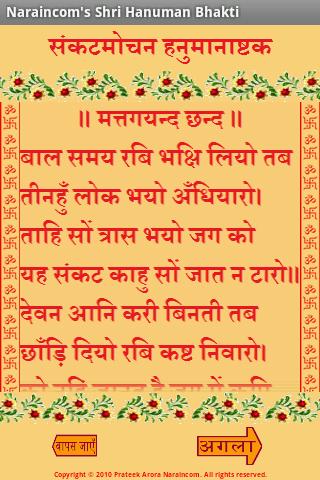 Naraincom's Shri Hanuman Bhakti
संकटमोचन हनुमानाष्टक
॥ मत्तगयन्द छन्द ॥
बाल समय रबि भक्षि लियो तब
तीनहुँ लोक भयो अँधियारो।
ताहि सों त्रास भयो जग को
यह संकट काहु सों जात न टारो॥
देवन आनि करी बिनती तब
छाँड़ि दियो रबि कष्ट निवारो।
वापस जाएँ
अगला
Copyright © 2010 Prateek Arora Naraincom. All rights reserved.